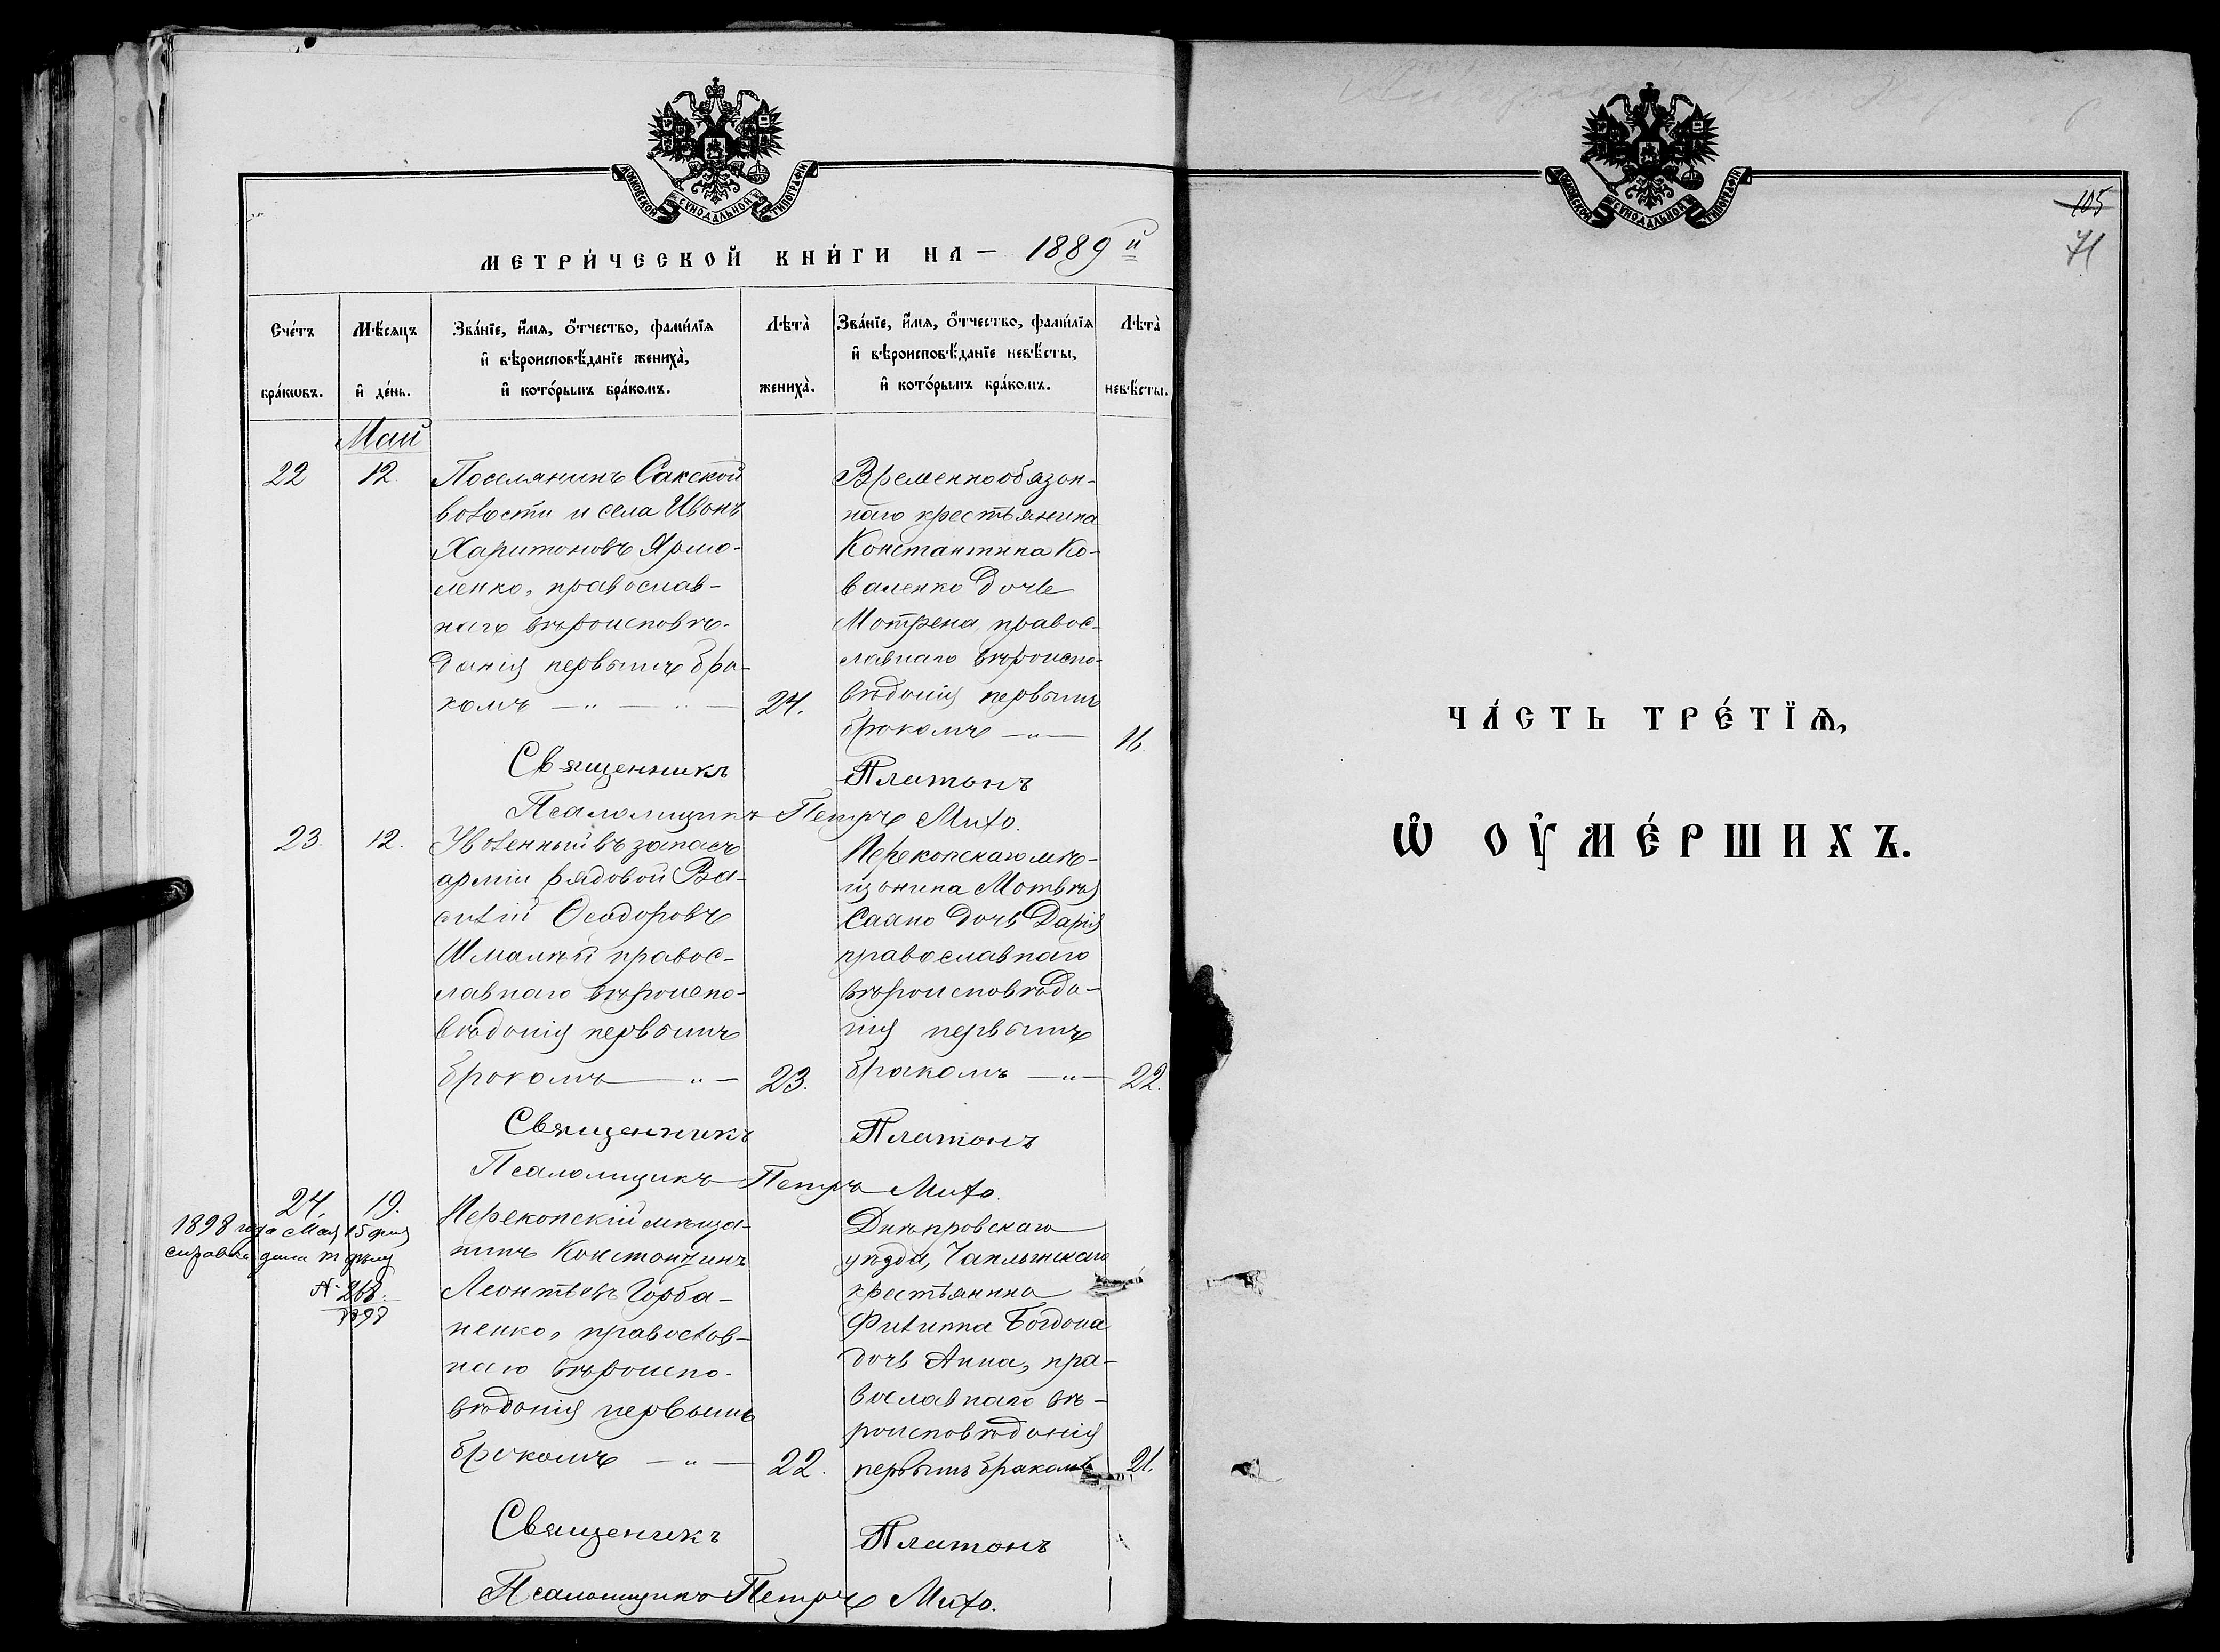 МОСКОВСКОЙ СѴНОДАЛЬНОЙ ТИПОГРАФІИ
МЕТРИ́ЧЕСКОЙ КНИ́ГИ НА — 1889 й
Сче́тъ бра́кѡвъ.
Мѣ́сяцъ и҆ де́нь.
Зва́нїе, и҆́мѧ, ѻ҆́тчество, фами́лїѧ
и҆ вѣроисповѣ́данїе жениха̀,
и҆ кото́рымъ бра́комъ.
Лѣта̀ жениха̀.
Зва́нїе, и҆́мѧ, ѻ҆́тчество, фами́лїѧ
и҆ вѣроисповѣ́данїе невѣ́сты,
и҆ кото́рымъ бра́комъ.
Лѣта̀ невѣ́сты.
Май
22
12.
Поселянинъ Сакской
волости и села Иванъ
Харитоновъ Ярмо-
ленко, православ-
наго вѣроисповѣ-
данія первымъ бра-
комъ — „ — „ —
24.
Временнообязан-
наго крестьянина
Константина Ко-
валенко дочь
Мотрена, правос-
лавнаго вѣроиспо-
вѣданія первымъ
бракомъ — „ —
16.
Священникъ Платонъ
Псаломщикъ Петръ Михо.
23.
12.
Уволенный въ запасъ
арміи рядовой Ва-
силій Ѳеодоровъ
Шмалый правос-
лавнаго вѣроиспо-
вѣданія первымъ
бракомъ — „ —
23.
Перекопскаго мѣ-
щанина Матвѣя
Саапо дочь Дарія
православнаго
вѣроисповѣда-
нія первымъ
бракомъ — „ —
22.
Священникъ Платонъ
Псаломщикъ Петръ Михо.
24.
19.
1898 года Мая 15 дня
справка дана по дѣлу
№ 268.
1898
Перекопскій мѣща-
нинъ Константинъ
Леонтьевъ Горба-
ненко, православ-
наго вѣроиспо-
вѣданія первымъ
бракомъ — „ —
22.
Днѣпровскаго
уѣзда, Чаплынскаго
крестьянина
Филиппа Богдона
дочь Анна, пра-
вославнаго вѣ-
роисповѣданія
первымъ бракомъ
21.
Священикъ Платонъ
Псаломщикъ Петръ Михо.
МОСКОВСКОЙ СѴНОДАЛЬНОЙ ТИПОГРАФІИ
105
71
ЧА́СТЬ ТРЕ́ТЇѦ,
Ѡ҆ ОУ҆МЕ́РШИХЪ.